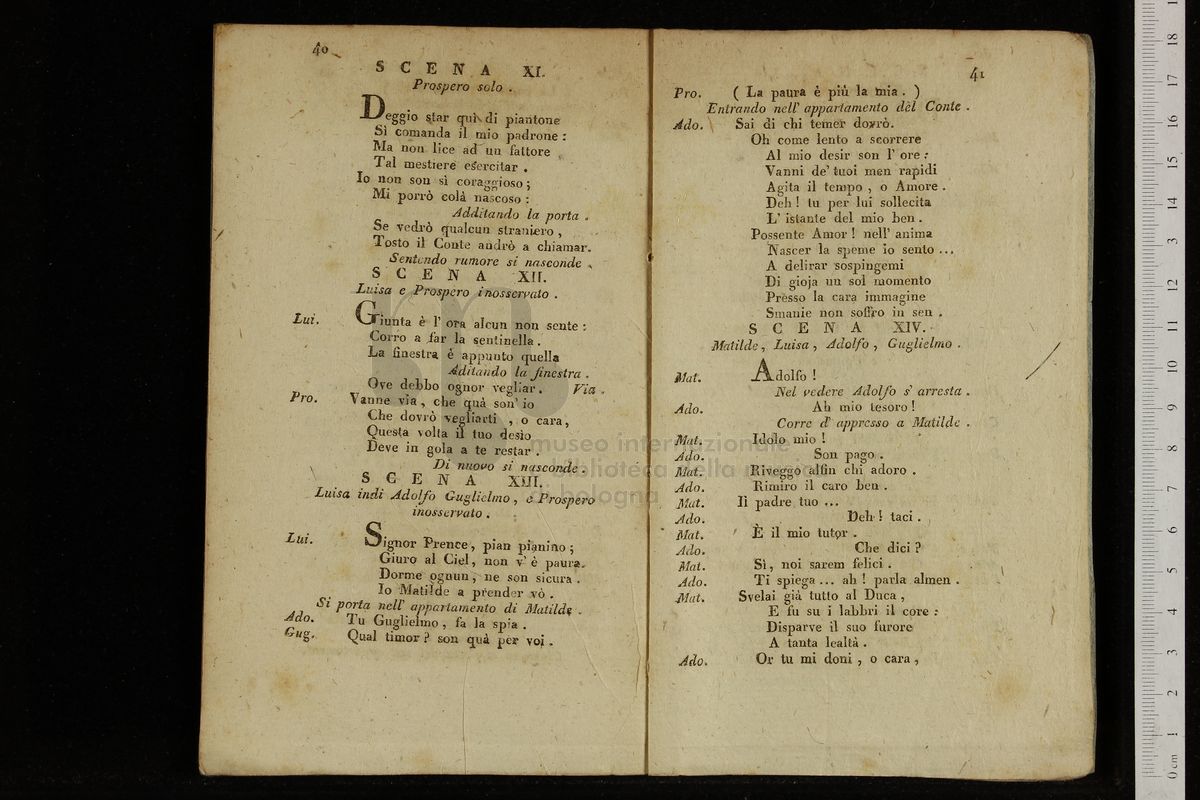 40
SCENA XI.
Prospero solo.
Deggio star quì di piantone
Sì comanda il mio padrone:
Ma non lice ad un fattore
Tal mestiere esercitar.
Io non son sì coraggioso;
Mi porrò colà nascoso:
Additando la porta.
Se vedrò qualcun straniero,
Tosto il Conte andrò a chiamar.
Sentendo rumore si nasconde.
SCENA XII.
Luisa e Prospero inosservato.
Lui. Giunta è l' ora alcun non sente:
Corro a far la sentinella.
La finestra è appunto quella
Aditando la finestra.
Ove debbo ognor vegliar. Via.
Pro. Vanne via, che quà son' io
Che dovrò vegliarti, o cara,
Questa volta il tuo desìo
Deve in gola a te restar.
Di nuovo si nasconde.
SCENA XIII.
Luisa indi Adolfo Guglielmo, e Prospero
inosservato.
Lui. Signor Prence, pian pianino;
Giuro al Ciel, non v' è paura.
Dorme ognun, ne son sicura.
Io Matilde a prender vò.
Si porta nell' appartamento di Matilde.
Ado. Tu Guglielmo, fa la spia.
Gug. Qual timor? son quà per voi.
41
Pro. (La paura è più la mia.)
Entrando nell' appartamento del Conte.
Ado. Sai di chi temer dovrò.
Oh come lento a scorrere
Al mio desir son l' ore:
Vanni de' tuoi men rapidi
Agita il tempo, o Amore.
Deh! tu per lui sollecita
L' istante del mio ben.
Possente Amor! nell' anima
Nascer la speme io sento ...
A delirar sospingemi
Di gioja un sol momento
Presso la cara immagine
Smanie non soffro in sen.
SCENA XIV.
Matilde, Luisa, Adolfo, Guglielmo.
Mat. Adolfo!
Nel vedere Adolfo s' arresta.
Ado. Ah mio tesoro!
Corre d' appresso a Matilde.
Mat. Idolo mio!
Ado. Son pago.
Mat. Riveggo alfin chi adoro.
Ado. Rimiro il caro ben.
Mat. Il padre tuo ...
Ado. Deh! taci.
Mat. È il mio tutor.
Ado. Che dici?
Mat. Sì, noi sarem felici.
Ado. Ti spiega ... ah! parla almen.
Mat. Svelai già tutto al Duca,
E fu su i labbri il core:
Disparve il suo furore
A tanta lealtà.
Ado. Or tu mi doni, o cara,
museo internazionale
e biblioteca della musica
di bologna
0 cm 1 2 3 4 5 6 7 8 9 10 11 12 13 14 15 16 17 18